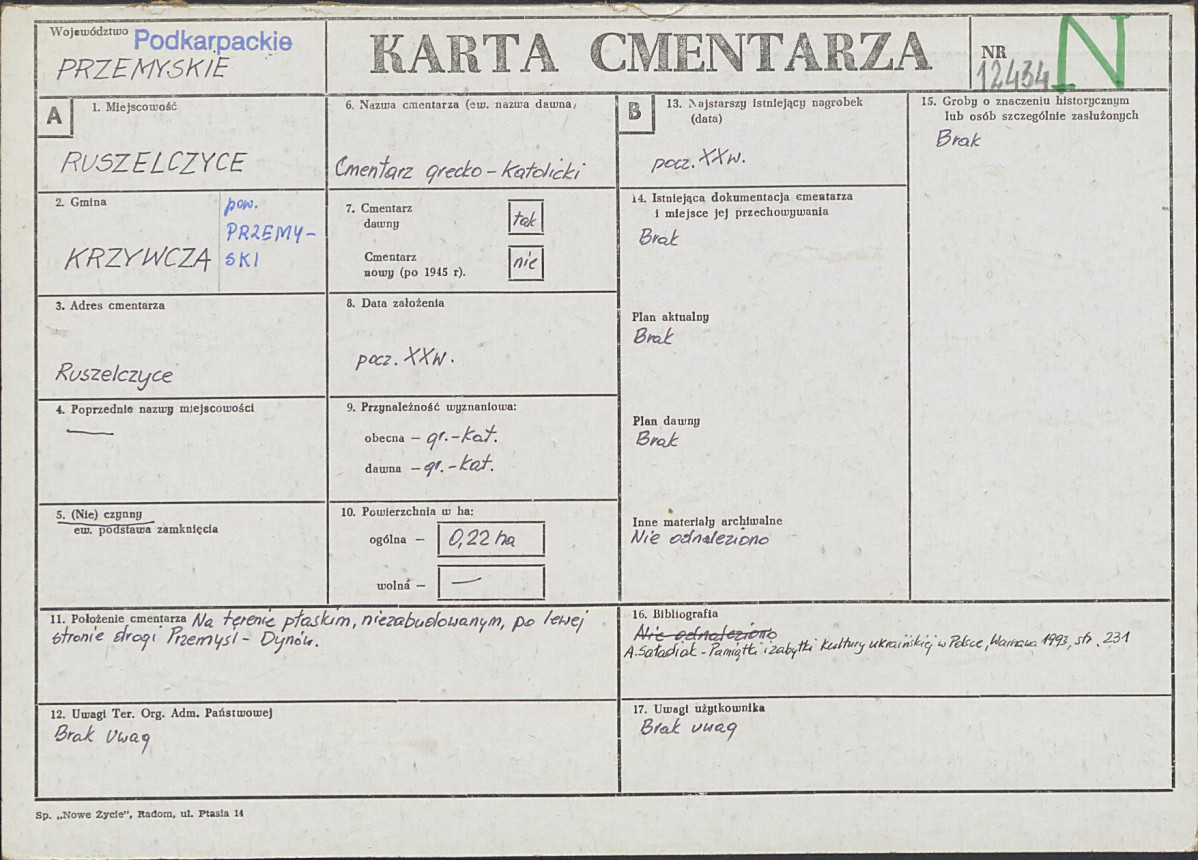 Województwo Podkarpackie
PRZEMYSKIE
KARTA CMENTARZA
NR
12434
N
A
1. Miejscowość
RUSZELCZYCE
2. Gmina
KRZYWCZA
pow.
PRZEMY-
SKI
3. Adres cmentarza
Ruszelczyce
4. Poprzednie nazwy miejscowości
—
5. (Nie) czynny
ew. podstawa zamknięcia
6. Nazwa cmentarza (ew. nazwa dawna)
Cmentarz grecko-katolicki
7. Cmentarz
dawny
tak
Cmentarz
nowy (po 1945 r).
nie
8. Data założenia
pocz. XXw.
9. Przynależność wyznaniowa:
obecna – gr.-kat.
dawna – gr.-kat.
10. Powierzchnia w ha:
ogólna – 0,22 ha
wolna – —
11. Położenie cmentarza Na terenie płaskim, niezabudowanym, po lewej
stronie drogi Przemyśl - Dynów.
12. Uwagi Ter. Org. Adm. Państwowej
Brak uwag
B
13. Najstarszy istniejący nagrobek
(data)
pocz. XXw.
14. Istniejąca dokumentacja cmentarza
i miejsce jej przechowywania
Brak
Plan aktualny
Brak
Plan dawny
Brak
Inne materiały archiwalne
Nie odnaleziono
15. Groby o znaczeniu historycznym
lub osób szczególnie zasłużonych
Brak
16. Bibliografia
Nie odnaleziono
A. Saładiak - Pamiątki i zabytki kultury ukraińskiej w Polsce, Warszawa 1993, str. 231
17. Uwagi użytkownika
Brak uwag
Sp. „Nowe Życie", Radom, ul. Ptasia 14